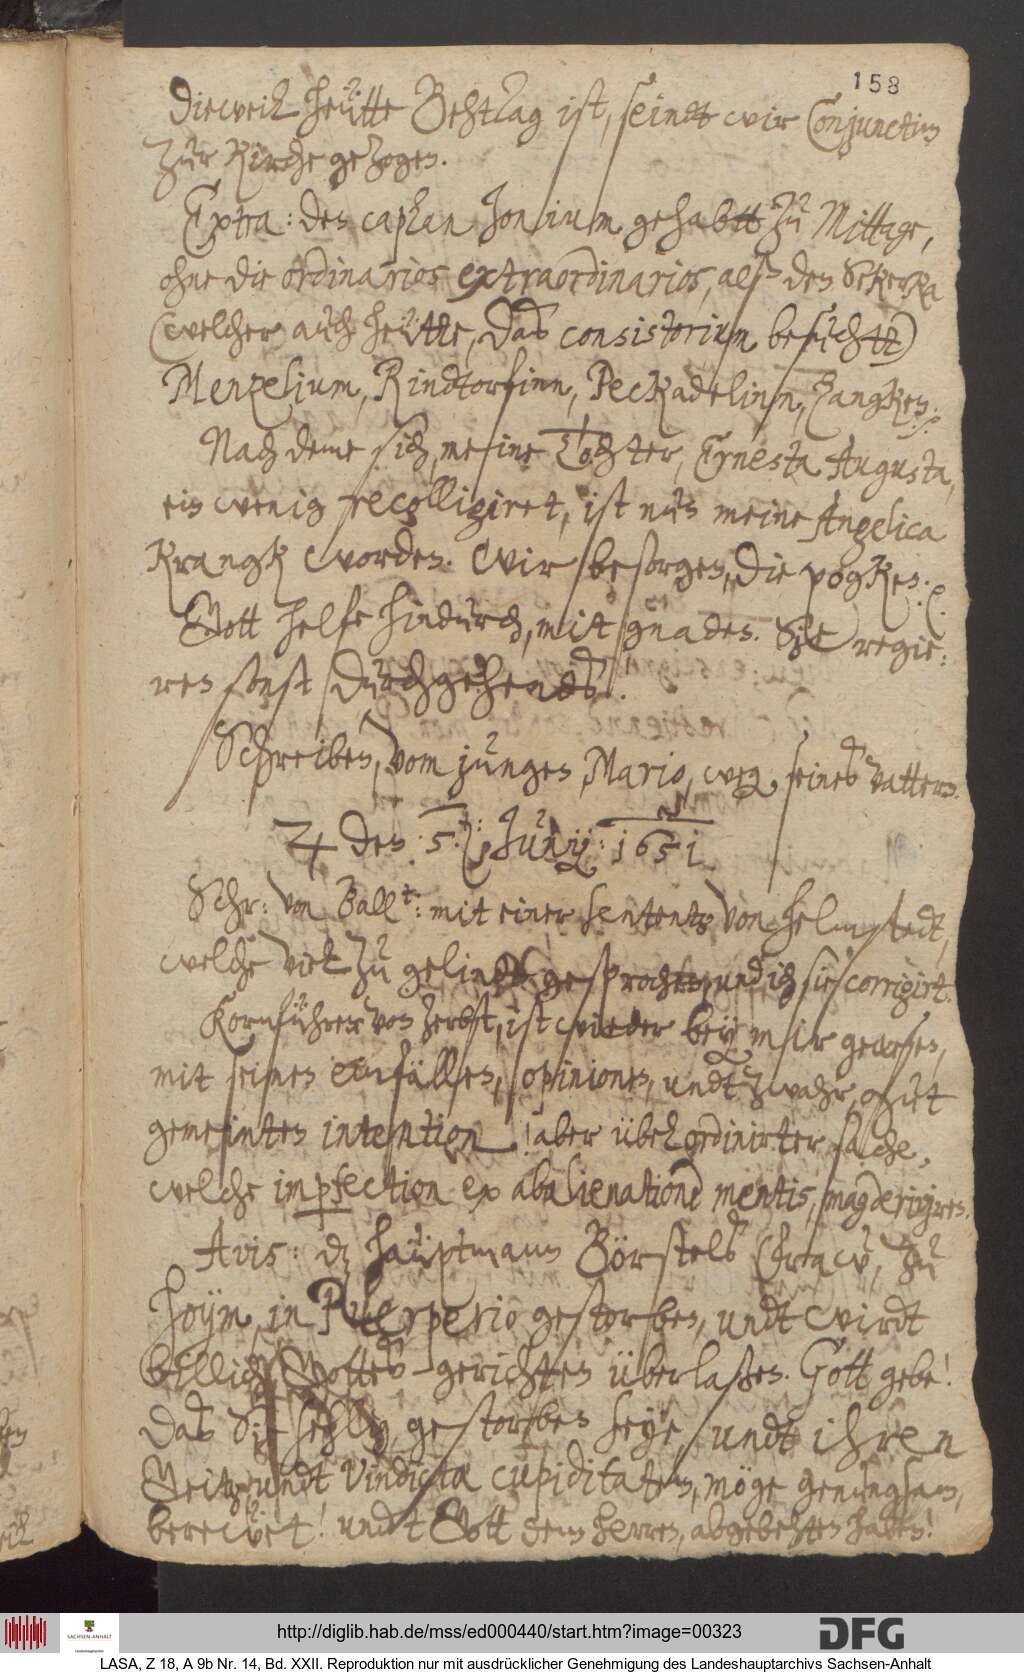 158
Dieweil heütte Behttag ist, seindt wir Conjunctim
zur Kirche gezogen.
Extra: den caplan Jonium gehabtt zu Mittage,
ohne die ordinarios extraordinarios, alß den Sekerka
(welcher auch heütte, das consistorium besuchtt)
Menzelium, Rindtorfinn, Peckadelinn,
Nach deme sich, meine Tochter, Ernesta Augusta,
ein wenig recolligiret, ist nun meine Angelica
Krangk worden. Wir besorgen, die pogken.
Gott helfe hindurch, mit gnaden. Sie regie:
ren sonst durchgehends.
Schreiben, vom jungen, Mario, weg. seines Vatters.
♃ den 5. Junij: 1651
Schr: von Ball: mit einer sententz von Helmstedt,
welche viel zu gelindt gesprochen, und ich sie corrigirt.
Kornführer von Zerbst, ist wieder bey mir gewesen,
mit seinen einfällen, opinionen, undt zwahr, guht
gemeinten intention! aber übel ordinirter sache,
welche imperfection ex abalienatione mentis, mag derivjren.
Avis: dz Hauptmann Börstels Fraw, zu
Hoym, in Puerperio gestorben, undt wirdt
billich, Gottes-gerichten überlaßen. Gott gebe!
Das Sie sehlig, gestorben seye, undt ihren
Geitz, undt Vindictæ cupiditatem, möge genungsam,
berewet! undt Gott dem herren, abgebehten haben!
http://diglib.hab.de/mss/ed000440/start.htm?image=00323
SACHSEN-ANHALT
Landeshauptarchiv
DFG
LASA, Z 18, A 9b Nr. 14, Bd. XXII. Reproduktion nur mit ausdrücklicher Genehmigung des Landeshauptarchivs Sachsen-Anhalt